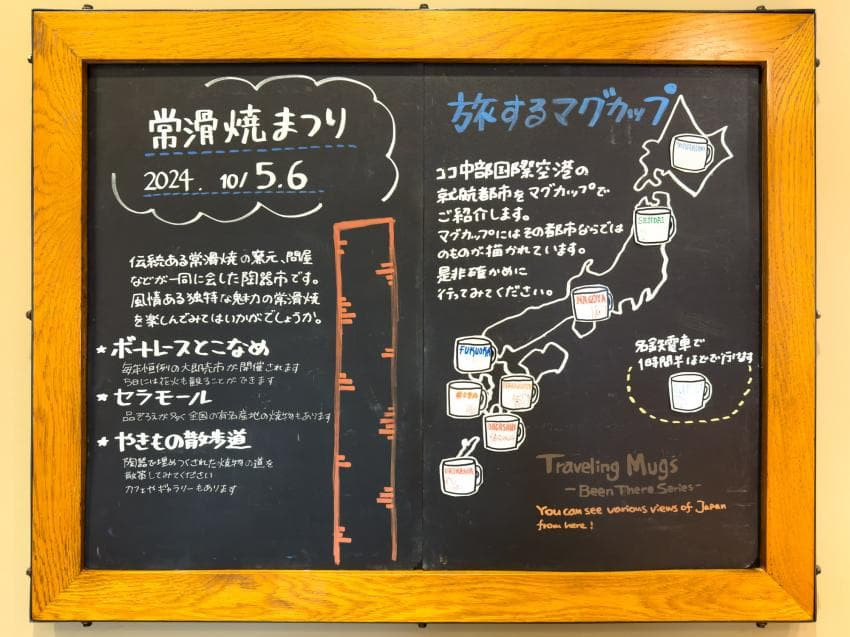 常滑焼まつり
2024. 10/5.6
伝統ある常滑焼の窯元、問屋
などが一同に会した陶器市です。
風情ある独特な魅力の常滑焼
を楽しんでみてはいかがでしょうか。
★ボートレースとこなめ
毎年恒例の大即売市が開催されます
5日には花火も観ることができます
★セラモール
品ぞろえが多く全国の有名産地の焼物もあります
★やきもの散歩道
陶器で埋めつくされた焼物の道を
散策してみてください
カフェやギャラリーもあります
旅するマグカップ
ココ中部国際空港の
就航都市をマグカップで
ご紹介します。
マグカップにはその都市ならでは
のものが描かれています。
是非確かめに
行ってみてください。
SENDAI
NAGOYA
FUKUOKA
NAGASAKI
OKINAWA
名鉄電車で
1時間半ほどで行けます
Traveling Mugs
-Been There Series-
You can see various views of Japan
from here!